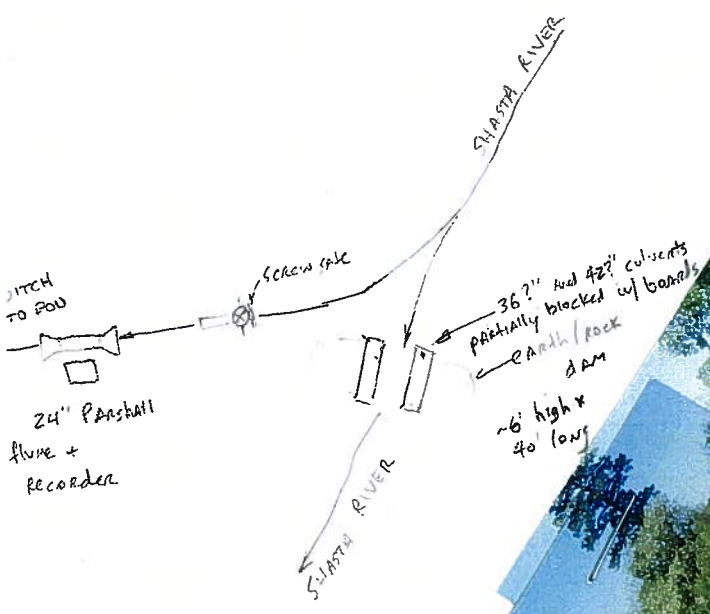 SHASTA RIVER
SCREW GATE
36?" and 42?" culverts
partially blocked w/ boards
earth/rock
dam
~6' high x
40' long
ITCH
TO
24" Parshall
flume +
Recorder
SHASTA RIVER